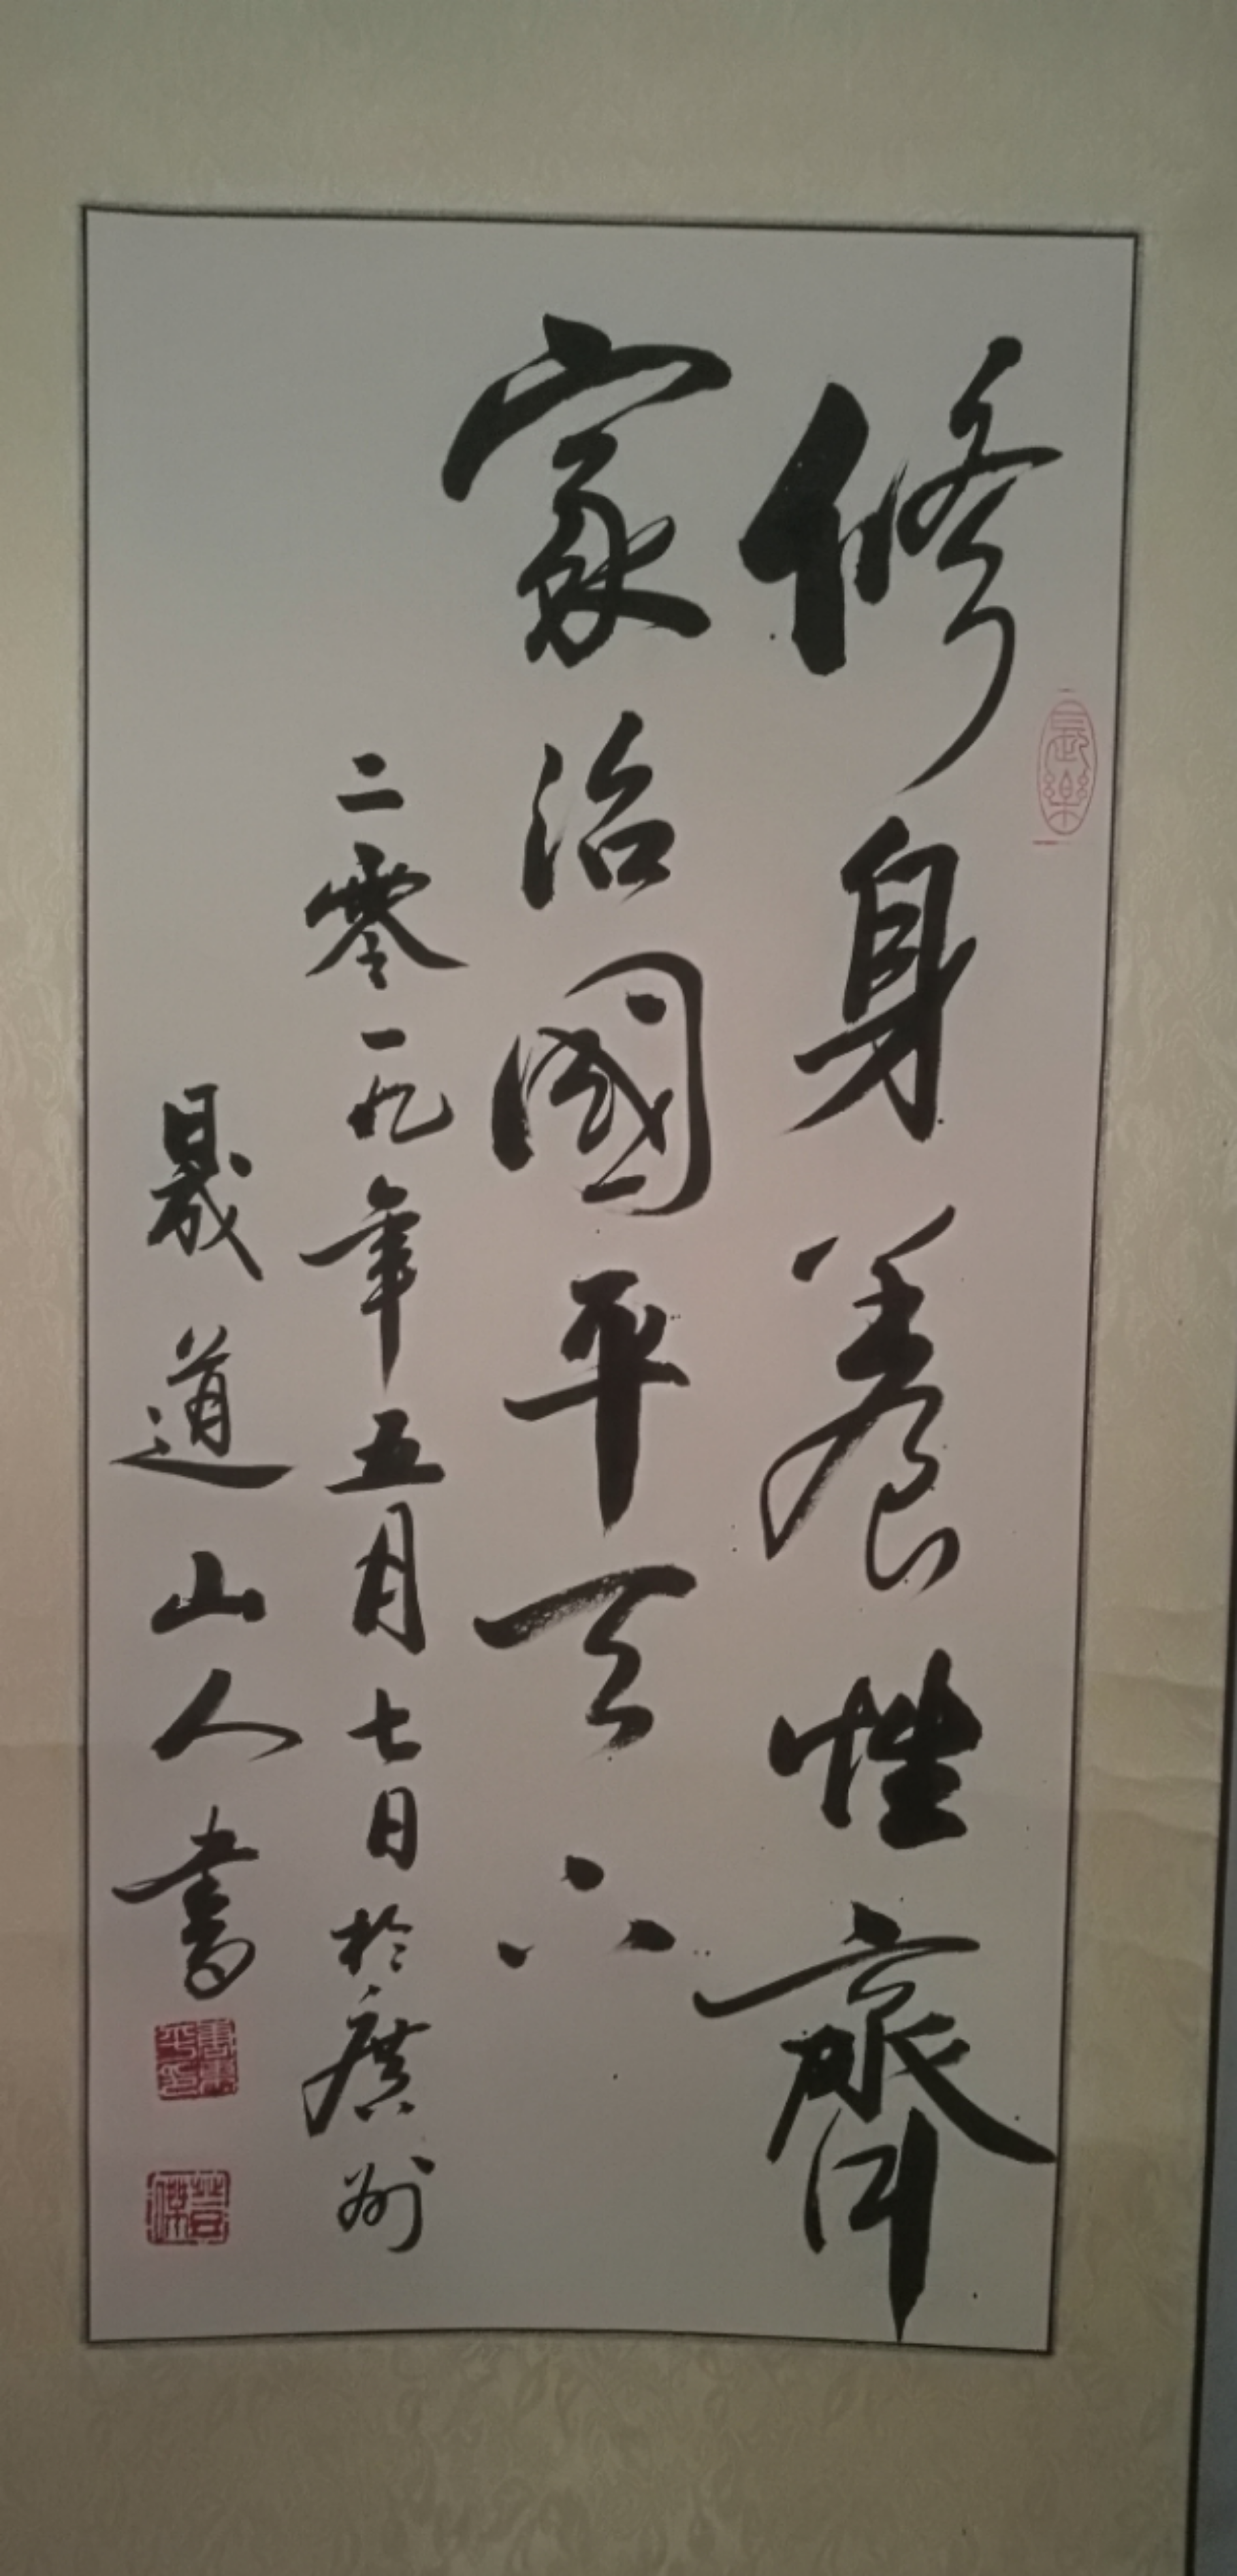 修身養性齊
家治國平天下
二零一九年五月七日於廣州
晟道山人書